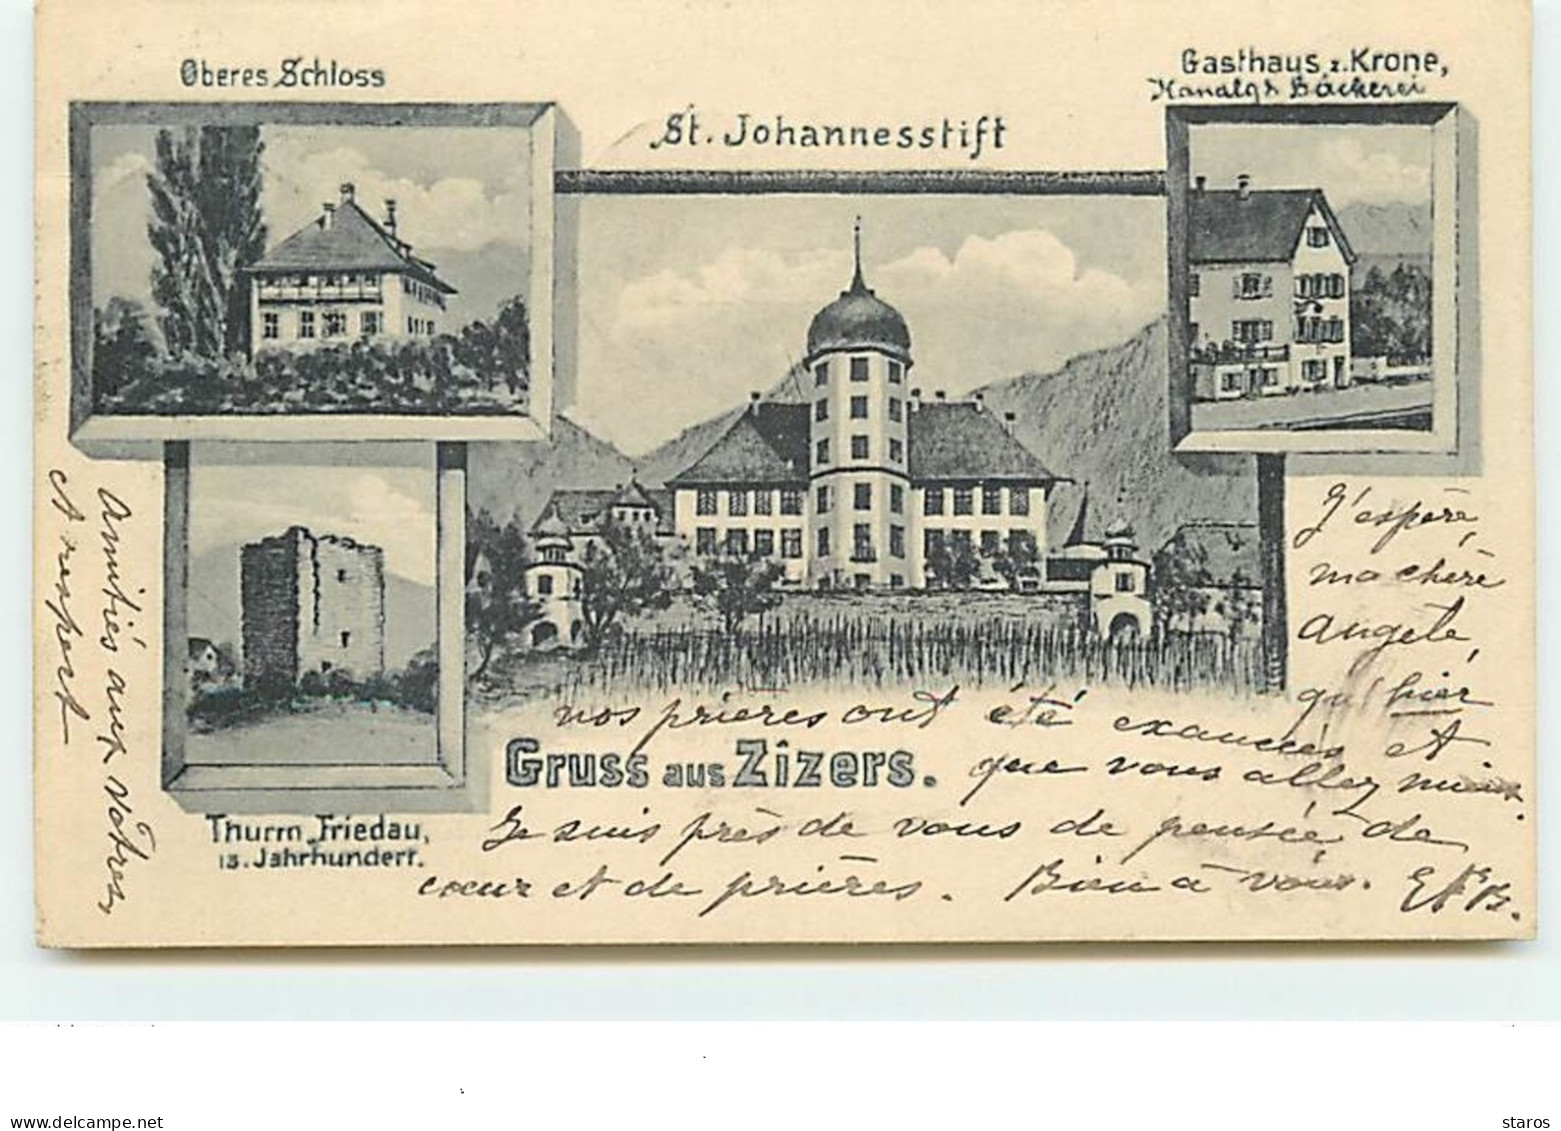 Oberes Schloss
St. Johannesstift
Gasthaus z. Krone,
Handlg & Bäckerei
Thurm Friedau,
13. Jahrhundert.
Gruss aus Zizers.
J'espère,
ma chère
Angele,
qu'hier
nos prieres ont été exaucées et
que vous allez mieux.
Je suis près de vous de pensée, de
cœur et de prières. Bien à vous.
Amitiés aux vôtres,
et respect
www.delcampe.net
staros